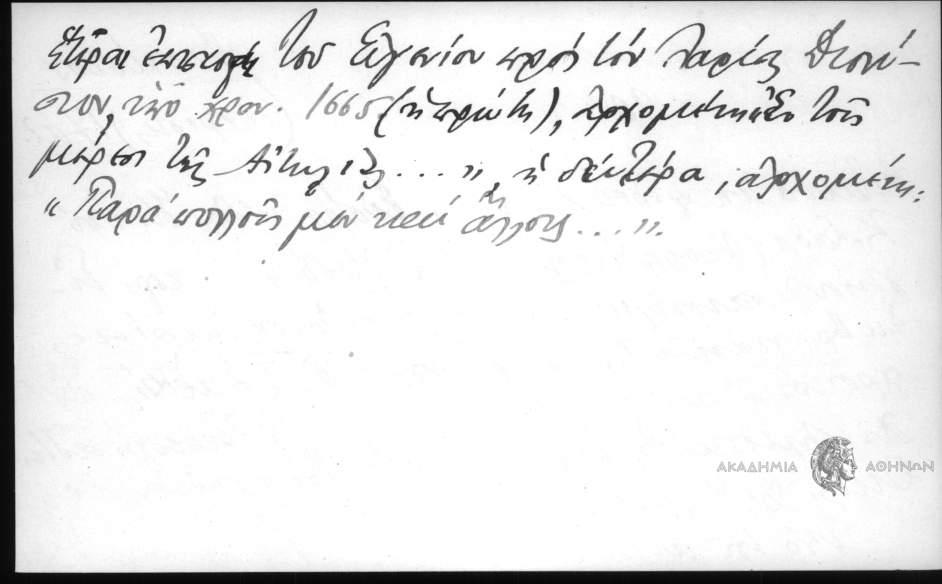 Ἕτεραι ἐπιστολαὶ τοῦ Εὐγενίου πρὸς τὸν Λαρίσης Διονύ-
σιον, ἀπὸ χρον. 1665 (ἡ πρώτη), ἀρχομένη: "Ἐν τοῖς
μέρεσι τῆς Αἰτωλίας...", ἡ δευτέρα, ἀρχομένη:
"Παρὰ πολλοῖς μὲν καὶ ἄλλοις...".
ΑΚΑΔΗΜΙΑ ΑΘΗΝΩΝ